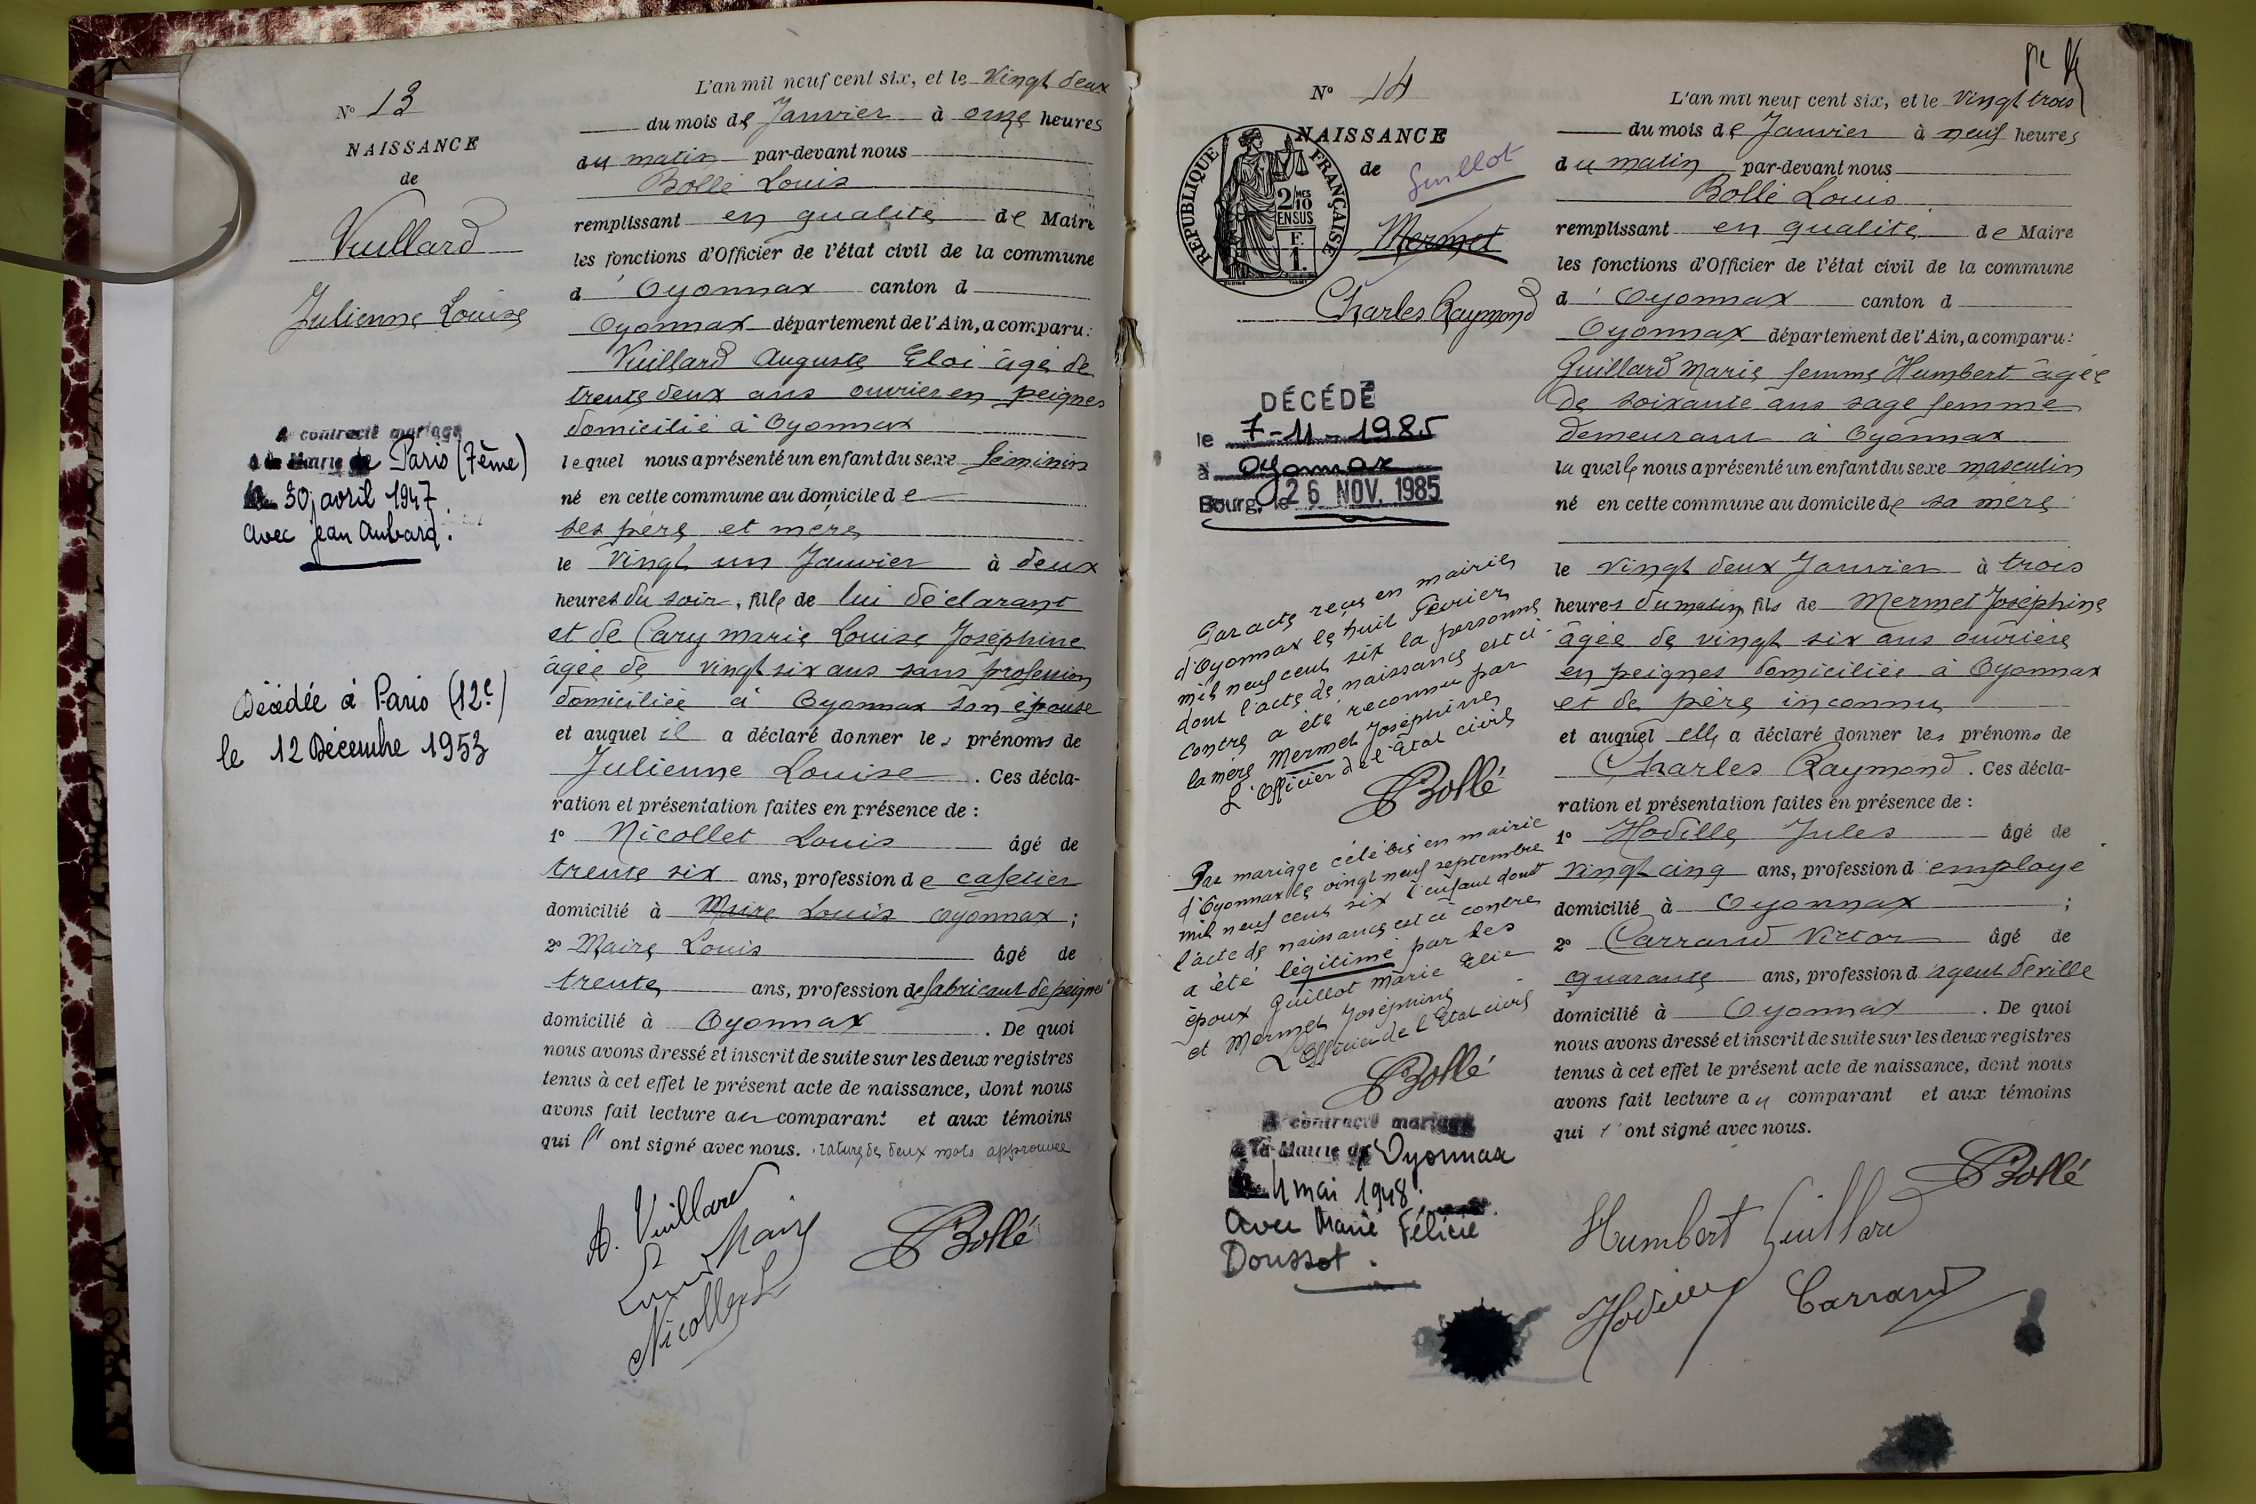 N° 13
NAISSANCE
de
Vuillard
Julienne Louise
A contracté mariage
à la Mairie de Paris (7ème)
le 30 avril 1947.
avec Jean Aubard.
Décédée à Paris (12e)
le 12 Décembre 1953
L'an mil neuf cent six, et le Vingt deux
du mois de Janvier à onze heures
du matin par-devant nous
Bollé Louis
remplissant en qualité de Maire
les fonctions d'Officier de l'état civil de la commune
d' Oyonnax canton d
Oyonnax département de l'Ain, a comparu:
Vuillard Auguste Eloi âgé de
trente deux ans ouvrier en peignes
domicilié à Oyonnax
lequel nous a présenté un enfant du sexe féminin
né en cette commune au domicile de
ses père et mère
le Vingt un Janvier à deux
heures du soir, fille de lui déclarant
et de Cary Marie Louise Joséphine
âgée de vingt six ans sans profession
domiciliée à Oyonnax son épouse
et auquel il a déclaré donner les prénoms de
Julienne Louise. Ces décla-
ration et présentation faites en présence de:
1° Nicollet Louis âgé de
trente six ans, profession de cafetier
domicilié à Maire Louis Oyonnax;
2° Maire Louis âgé de
trente ans, profession de fabricant de peignes
domicilié à Oyonnax. De quoi
nous avons dressé et inscrit de suite sur les deux registres
tenus à cet effet le présent acte de naissance, dont nous
avons fait lecture au comparant et aux témoins
qui l' ont signé avec nous. rature de deux mots approuvée
A. Vuillard
Louis Maire
Nicollet L
Bollé
N° 14
NAISSANCE
de Guillot
Mermet
Charles Raymond
RÉPUBLIQUE FRANÇAISE
2/10 MES
EN SUS
F.
1.
DÉCÉDÉ
le 7-11-1985
à Oyonnax
Bourg, le 26 NOV. 1985
Par acte reçu en mairie
d'Oyonnax le huit Février
mil neuf cent six la personne
dont l'acte de naissance est ci-
contre a été reconnu par
la mère Mermet Joséphine
L'Officier de l'Etat civil
Bollé
Par mariage célébré en mairie
d'Oyonnax le vingt neuf septembre
mil neuf cent six l'enfant dont
l'acte de naissance est ci contre
a été légitimé par les
époux Guillot Marie Elie
et Mermet Joséphine
L'Officier de l'Etat civil
Bollé
A contracté mariage
à la Mairie de Oyonnax
le 4 mai 1948.
avec Marie Félicie
Doussot.
L'an mil neuf cent six, et le Vingt trois
du mois de Janvier à neuf heures
du matin par-devant nous
Bollé Louis
remplissant en qualité de Maire
les fonctions d'Officier de l'état civil de la commune
d' Oyonnax canton d
Oyonnax département de l'Ain, a comparu:
Guillard Marie femme Humbert âgée
de soixante ans sage femme
demeurant à Oyonnax
laquelle nous a présenté un enfant du sexe masculin
né en cette commune au domicile de sa mère
le vingt deux Janvier à trois
heures du matin, fils de Mermet Joséphine
âgée de vingt six ans ouvrière
en peignes domiciliée à Oyonnax
et de père inconnu
et auquel elle a déclaré donner les prénoms de
Charles Raymond. Ces décla-
ration et présentation faites en présence de:
1° Hodille Jules âgé de
vingt cinq ans, profession d'employé
domicilié à Oyonnax;
2° Carrand Victor âgé de
quarante ans, profession d'agent de ville
domicilié à Oyonnax. De quoi
nous avons dressé et inscrit de suite sur les deux registres
tenus à cet effet le présent acte de naissance, dont nous
avons fait lecture au comparant et aux témoins
qui l' ont signé avec nous.
Bollé
Humbert Guillard
Hodille Carrand